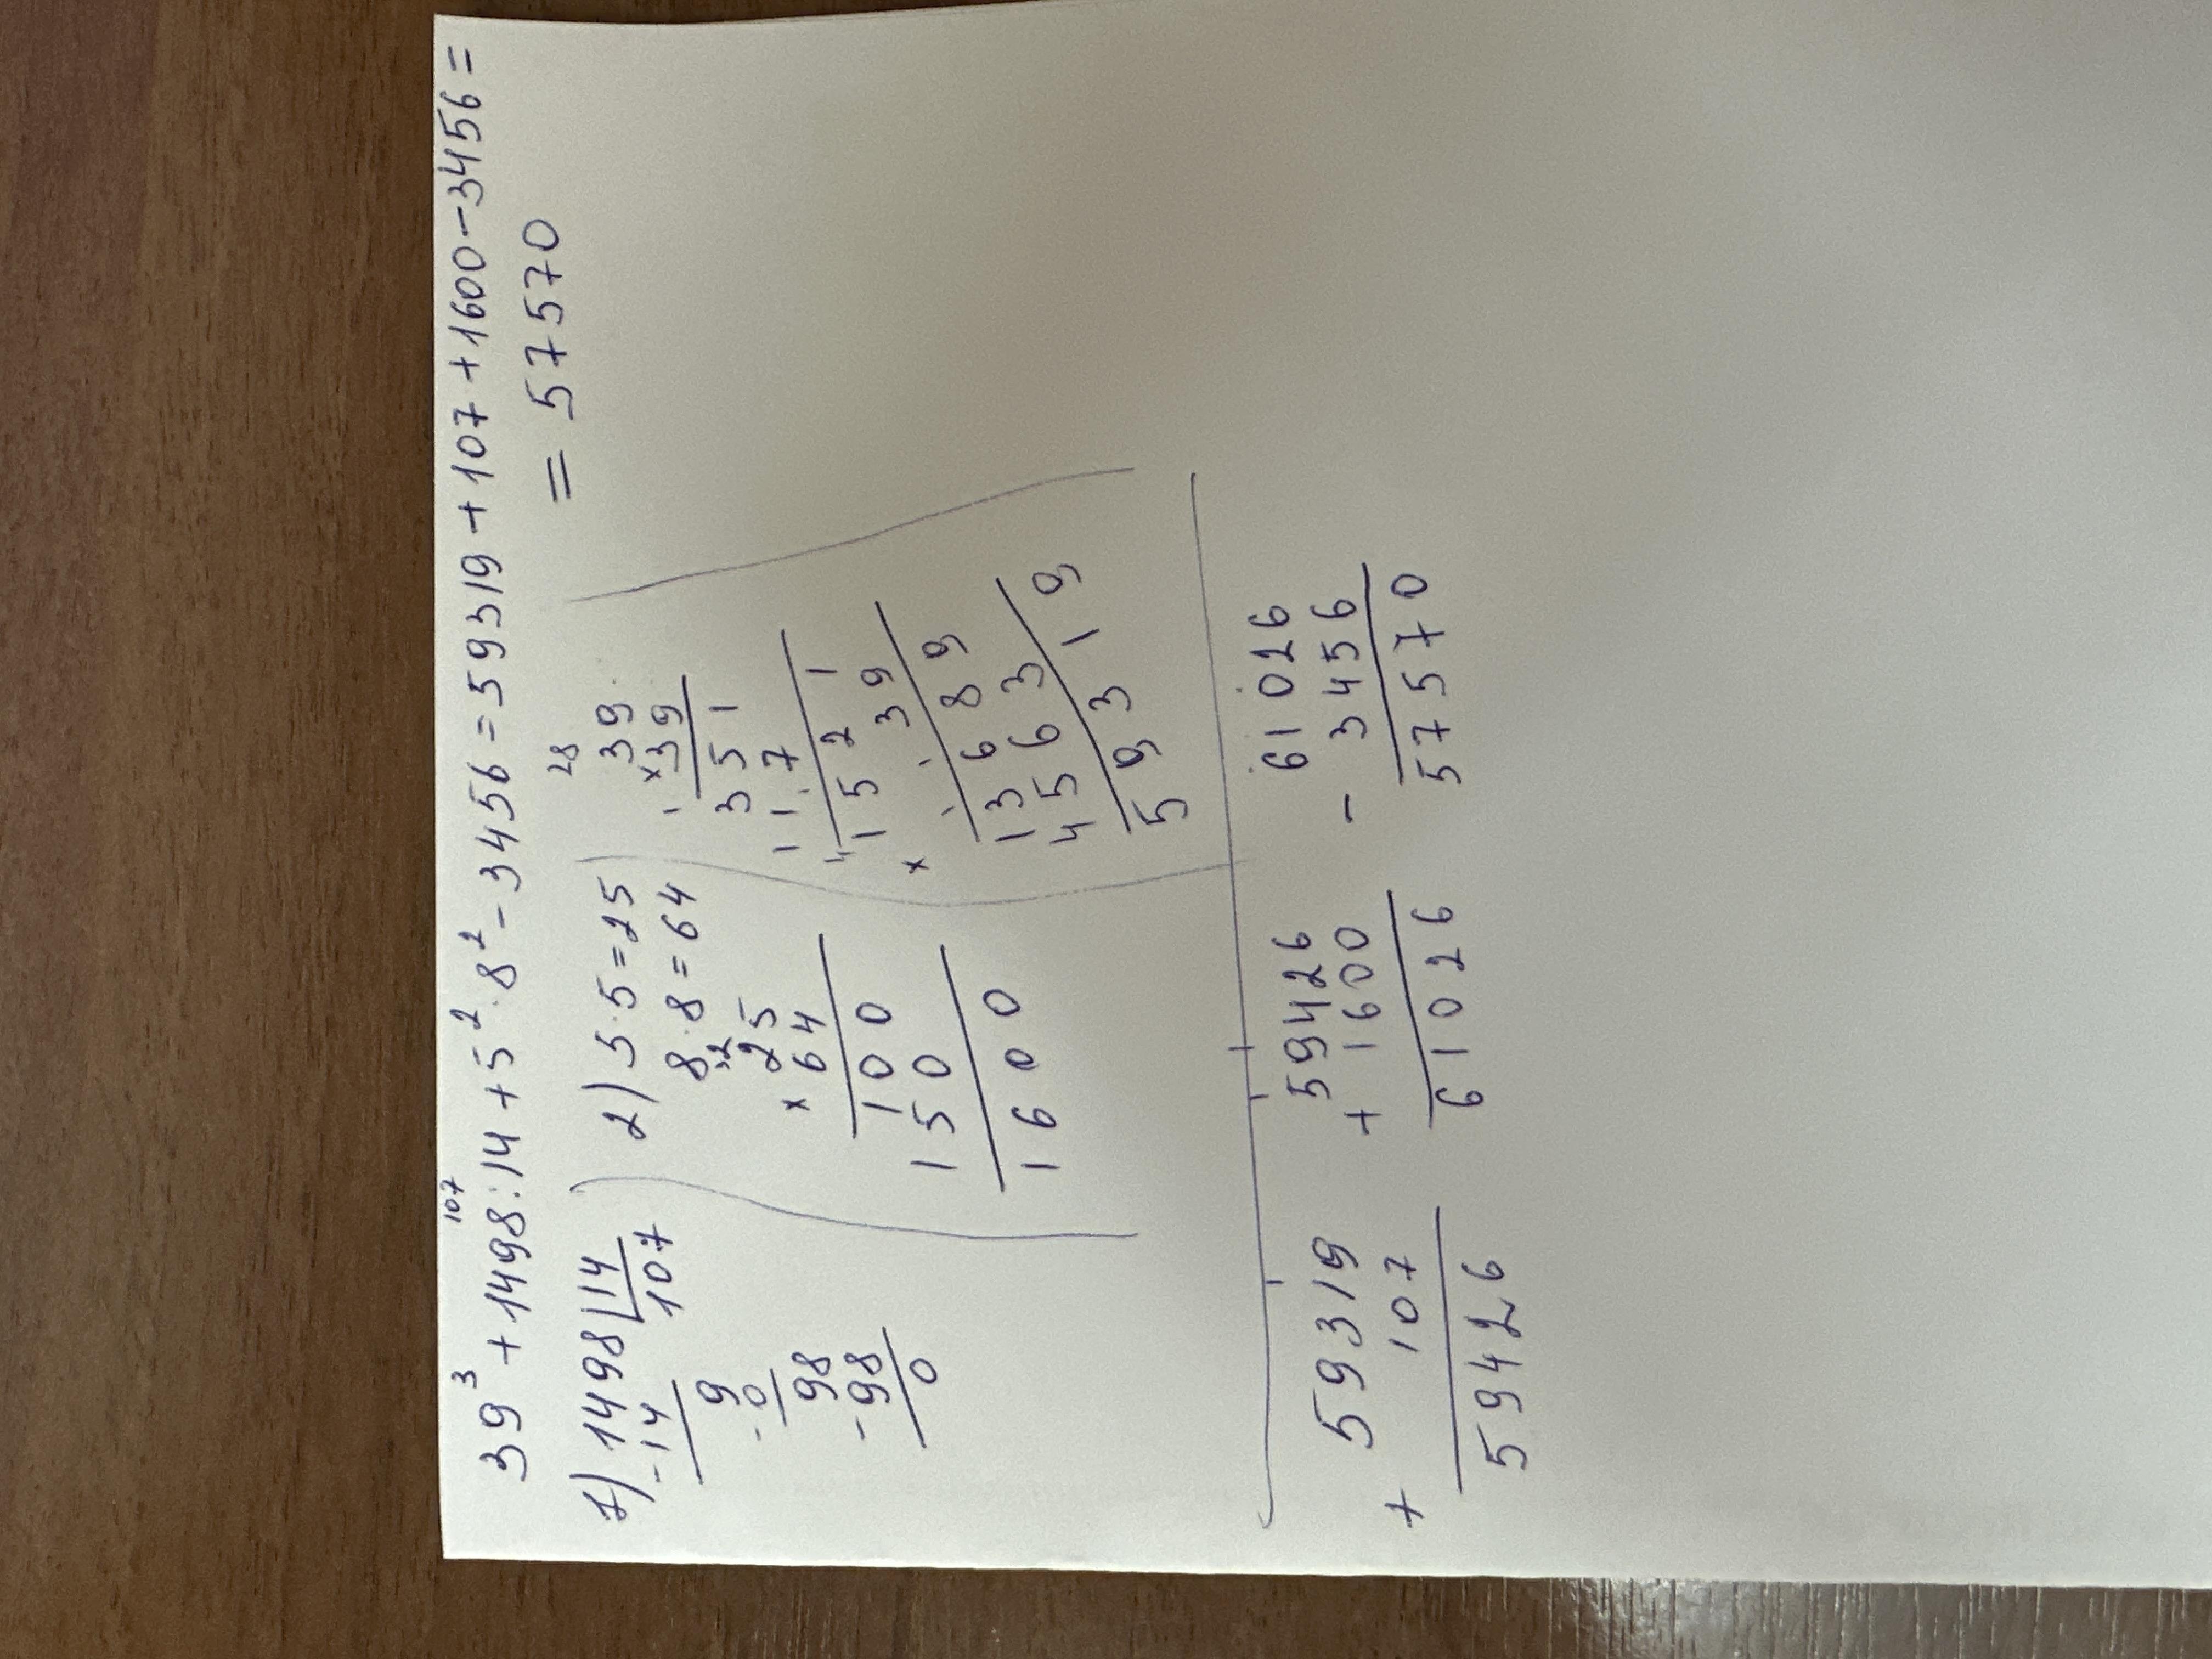 39³ + 1498:14 + 5²·8² - 3456 = 59319 + 107 + 1600 - 3456 =
107
= 57570
1) 1498 | 14
-14 107
9
-0
98
-98
0
2) 5·5=25
8·8=64
12
25
×64
100
150
1600
28
39
×39
351
117
1521
× 39
13689
4563
59319
59319
+ 107
59426
59426
+ 1600
61026
61026
- 3456
57570